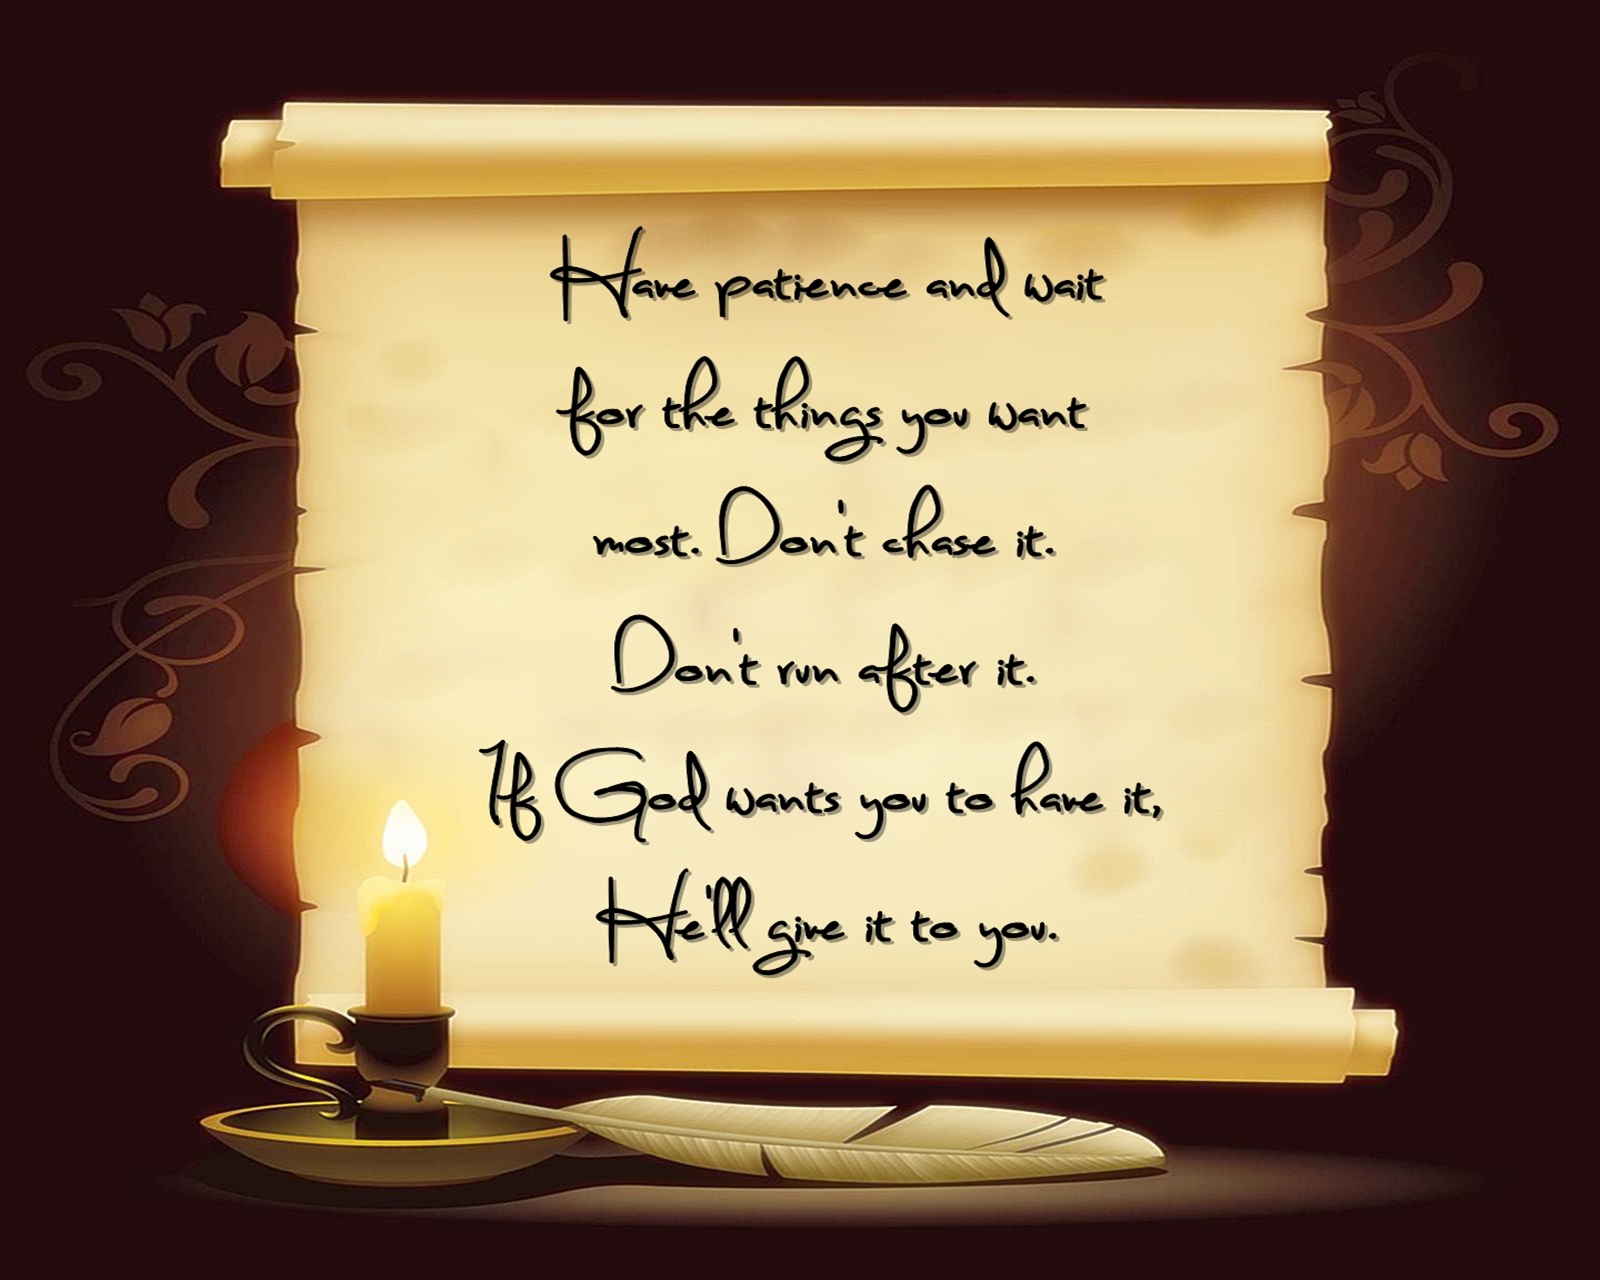 Have patience and wait
for the things you want
most. Don't chase it.
Don't run after it.
If God wants you to have it,
He'll give it to you.